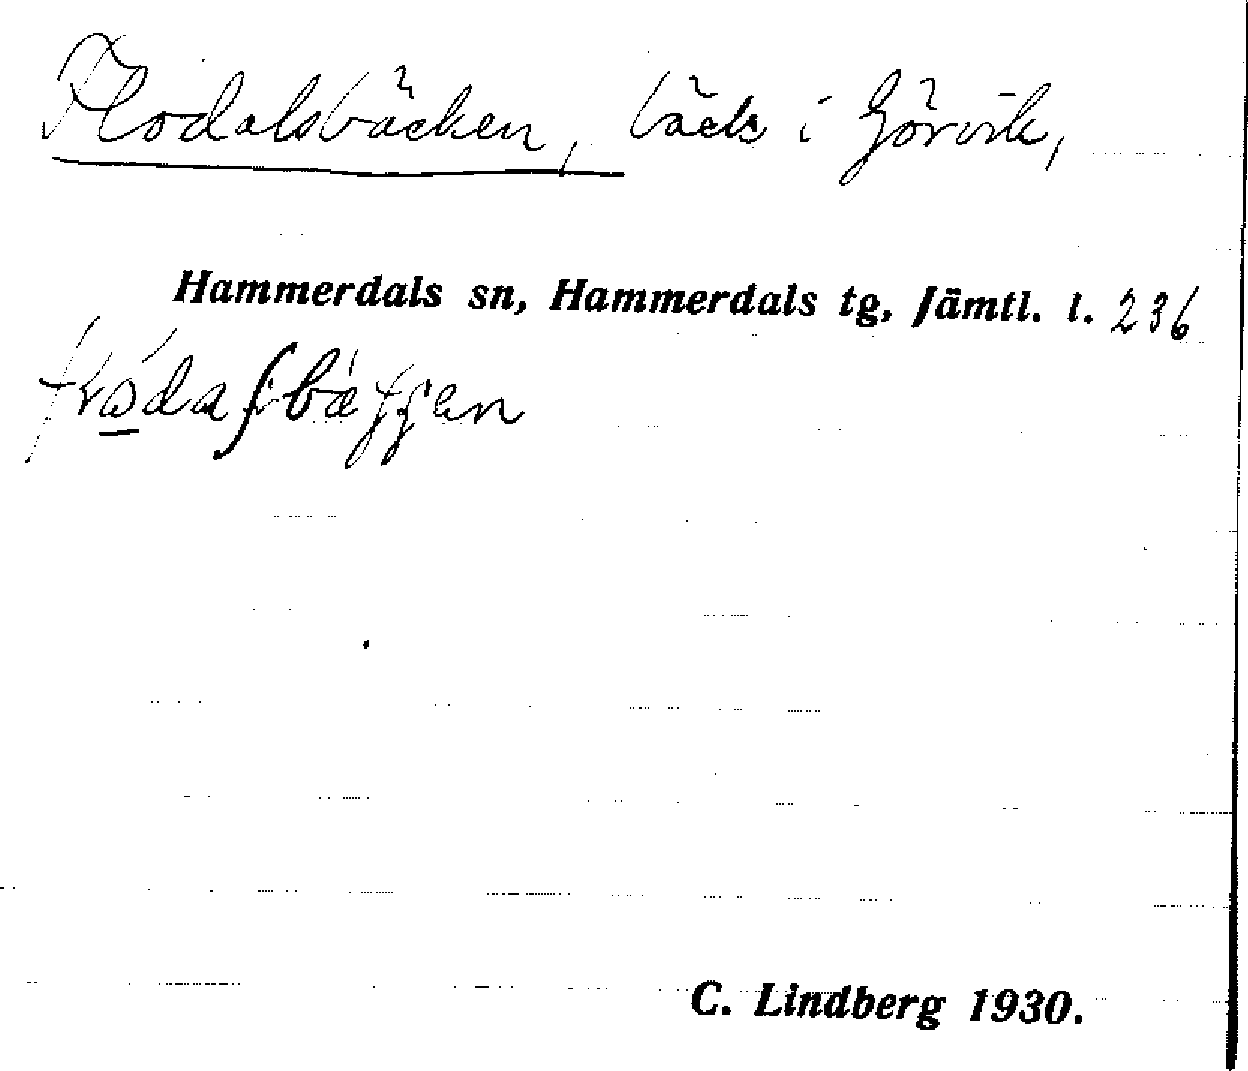 Flodalsbäcken, bäck i Görvik,
Hammerdals sn, Hammerdals tg, Jämtl. l. 236
C. Lindberg 1930.